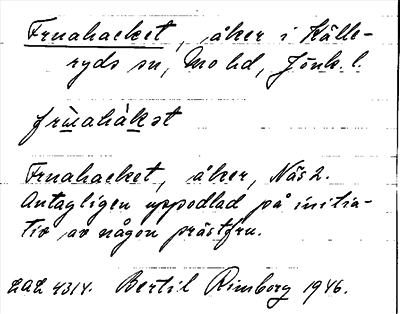 Fruahacket, åker i Kålle-
ryds sn, Mo hd, Jönk. l.
frùahàkət
Fruahacket, åker, Näs 2.
Antagligen uppodlad på initia-
tiv av någon prästfru.
LAL 4314. Bertil Rimborg 1946.